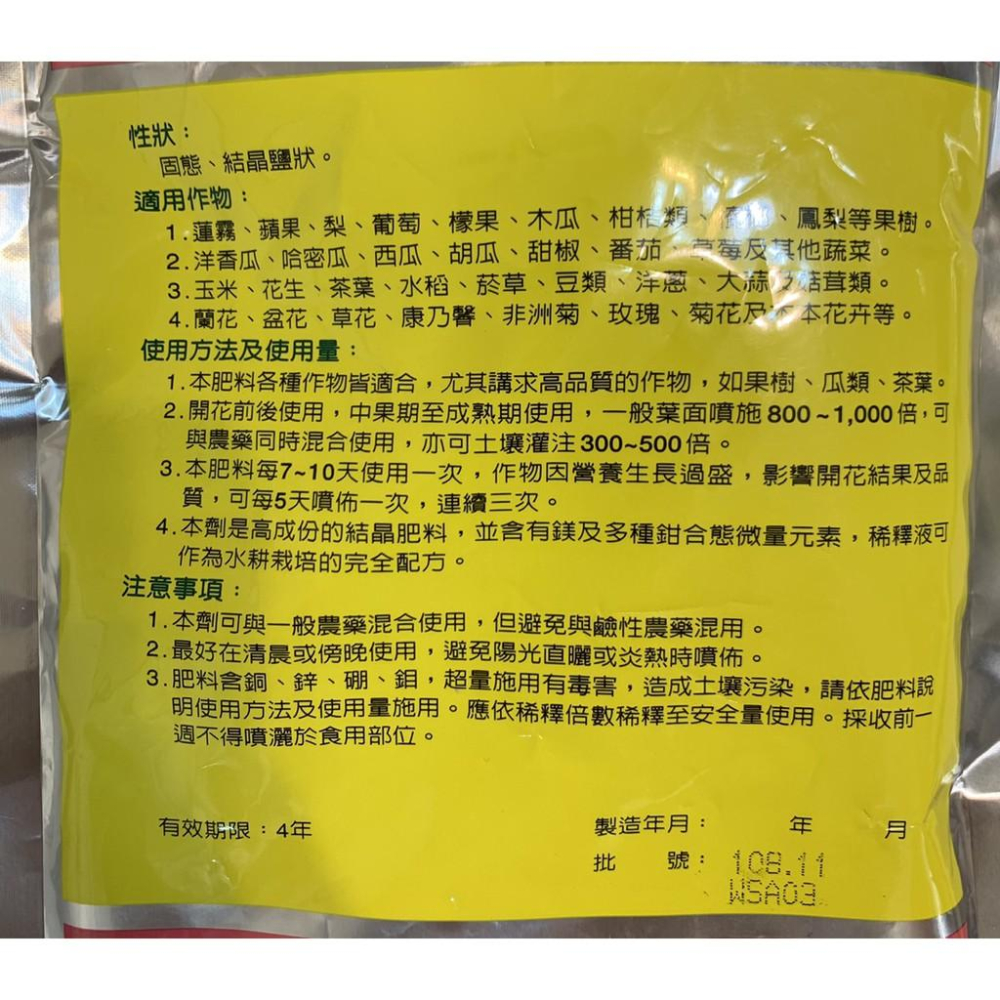 性狀：
固態、結晶鹽狀。
適用作物：
1.蓮霧、蘋果、梨、葡萄、檬果、木瓜、柑桔類、、鳳梨等果樹。
2.洋香瓜、哈密瓜、西瓜、胡瓜、甜椒、番茄、草莓及其他蔬菜。
3.玉米、花生、茶葉、水稻、菸草、豆類、洋蔥、大蒜及菇茸類。
4.蘭花、盆花、草花、康乃馨、非洲菊、玫瑰、菊花及本花卉等。
使用方法及使用量：
1.本肥料各種作物皆適合，尤其講求高品質的作物，如果樹、瓜類、茶葉。
2.開花前後使用，中果期至成熟期使用，一般葉面噴施800~1,000倍，可
與農藥同時混合使用，亦可土壤灌注300~500倍。
3.本肥料每7~10天使用一次，作物因營養生長過盛，影響開花結果及品
質，可每5天噴佈一次，連續三次。
4.本劑是高成份的結晶肥料，並含有鎂及多種鉗合態微量元素，稀釋液可
作為水耕栽培的完全配方。
注意事項：
1.本劑可與一般農藥混合使用，但避免與鹼性農藥混用。
2.最好在清晨或傍晚使用，避免陽光直曬或炎熱時噴佈。
3.肥料含銅、鋅、硼、鉬，超量施用有毒害，造成土壤污染，請依肥料說
明使用方法及使用量施用。應依稀釋倍數稀釋至安全量使用。採收前一
週不得噴灑於食用部位。
有效期限：4年
製造年月： 年 月
批 號： 108.11
WSA03